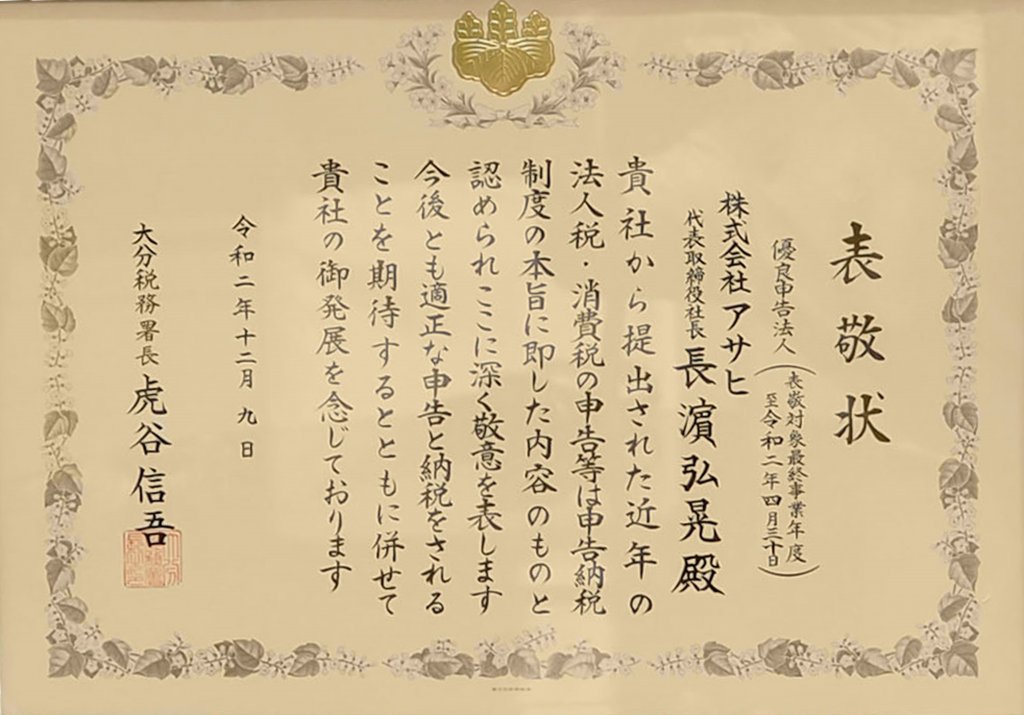 表敬状
優良申告法人
(表敬対象最終事業年度
至令和二年四月三十日)
株式会社アサヒ
代表取締役社長 長濵弘晃殿
貴社から提出された近年の
法人税・消費税の申告等は申告納税
制度の本旨に即した内容のものと
認められここに深く敬意を表します
今後とも適正な申告と納税をされる
ことを期待するとともに併せて
貴社の御発展を念じております
令和二年十二月九日
大分税務署長 虎谷信吾